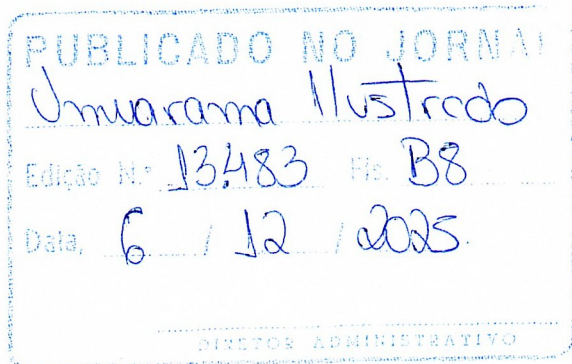 PUBLICADO NO JORNAL
Umuarama Ilustrado
Edição N.º 13.483 Fls. B8
Data, 6 / 12 / 2025
DIRETOR ADMINISTRATIVO